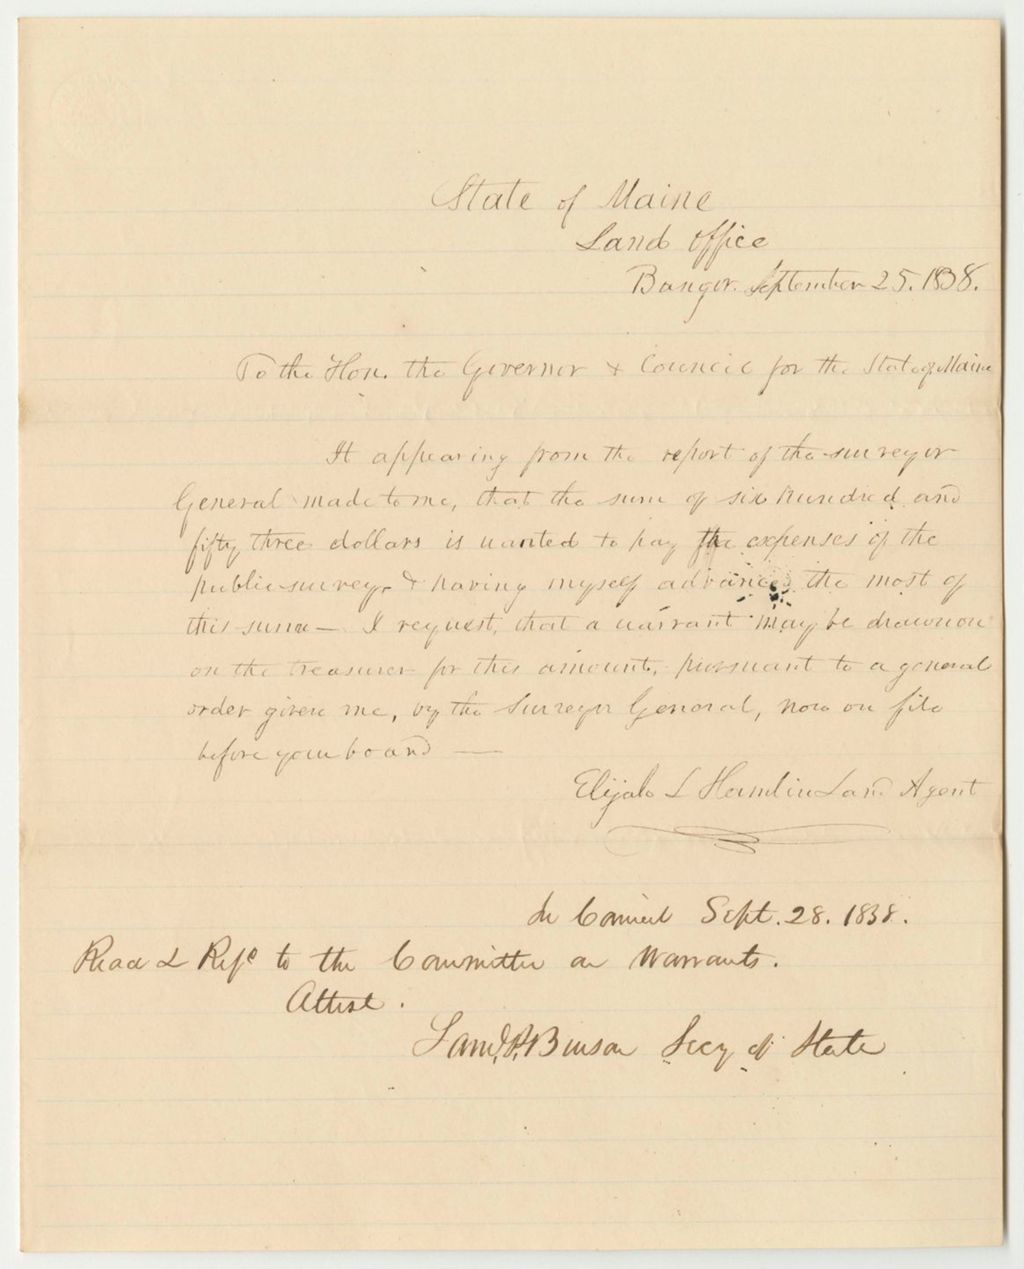 State of Maine
Land Office
Bangor. September 25. 1838.
To the Hon. the Governor & Council for the State of Maine
It appearing from the report of the surveyor
General made to me, that the sum of six hundred and
fifty three dollars is wanted to pay the expenses of the
public survey, & having myself advanced the most of
this sum — I request, that a warrant may be drawn on
on the treasurer for this amount, pursuant to a general
order given me, by the Surveyor General, now on file
before your board —
Elijah L Hamlin Land Agent
In Council Sept. 28. 1838.
Read & Refd to the Committee on Warrants.
Attest.
Saml. P. Benson Secy of State